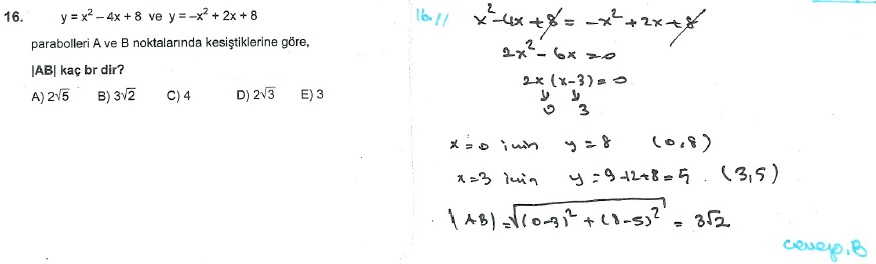 16. y = x² – 4x + 8 ve y = –x² + 2x + 8
parabolleri A ve B noktalarında kesiştiklerine göre,
|AB| kaç br dir?
A) 2√5 B) 3√2 C) 4 D) 2√3 E) 3
16.// x² - 4x + 8 = -x² + 2x + 8
2x² - 6x = 0
2x (x-3) = 0
0 3
x = 0 için y = 8 (0,8)
x = 3 için y = 9-12+8 = 5 . (3,5)
|AB| = √(0-3)² + (8-5)² = 3√2
cevap, B